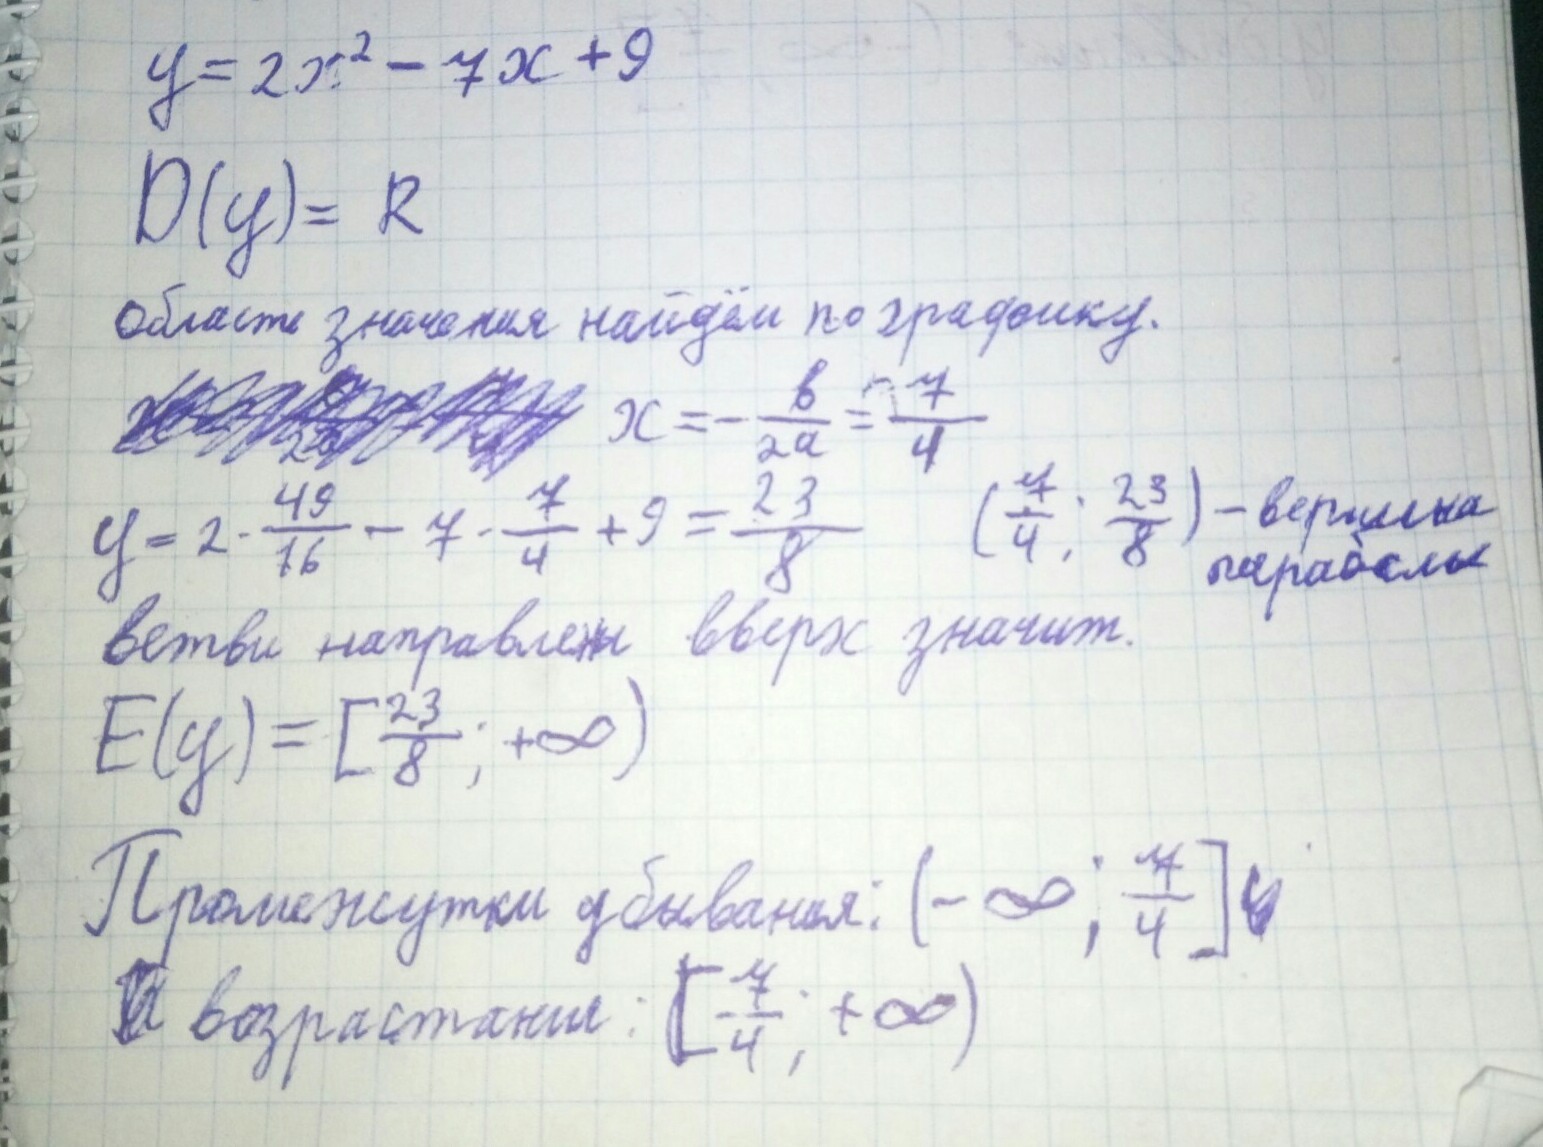 y = 2x² - 7x + 9
D(y) = R
область значения найдём по графику.
x = - в/2a = 7/4
y = 2 · 49/16 - 7 · 7/4 + 9 = 23/8 (7/4 ; 23/8) - вершина
параболы
ветви направлены вверх значит.
E(y) = [23/8 ; +∞)
Промежутки убывания: (-∞ ; 7/4]
и возрастания: [7/4 ; +∞)